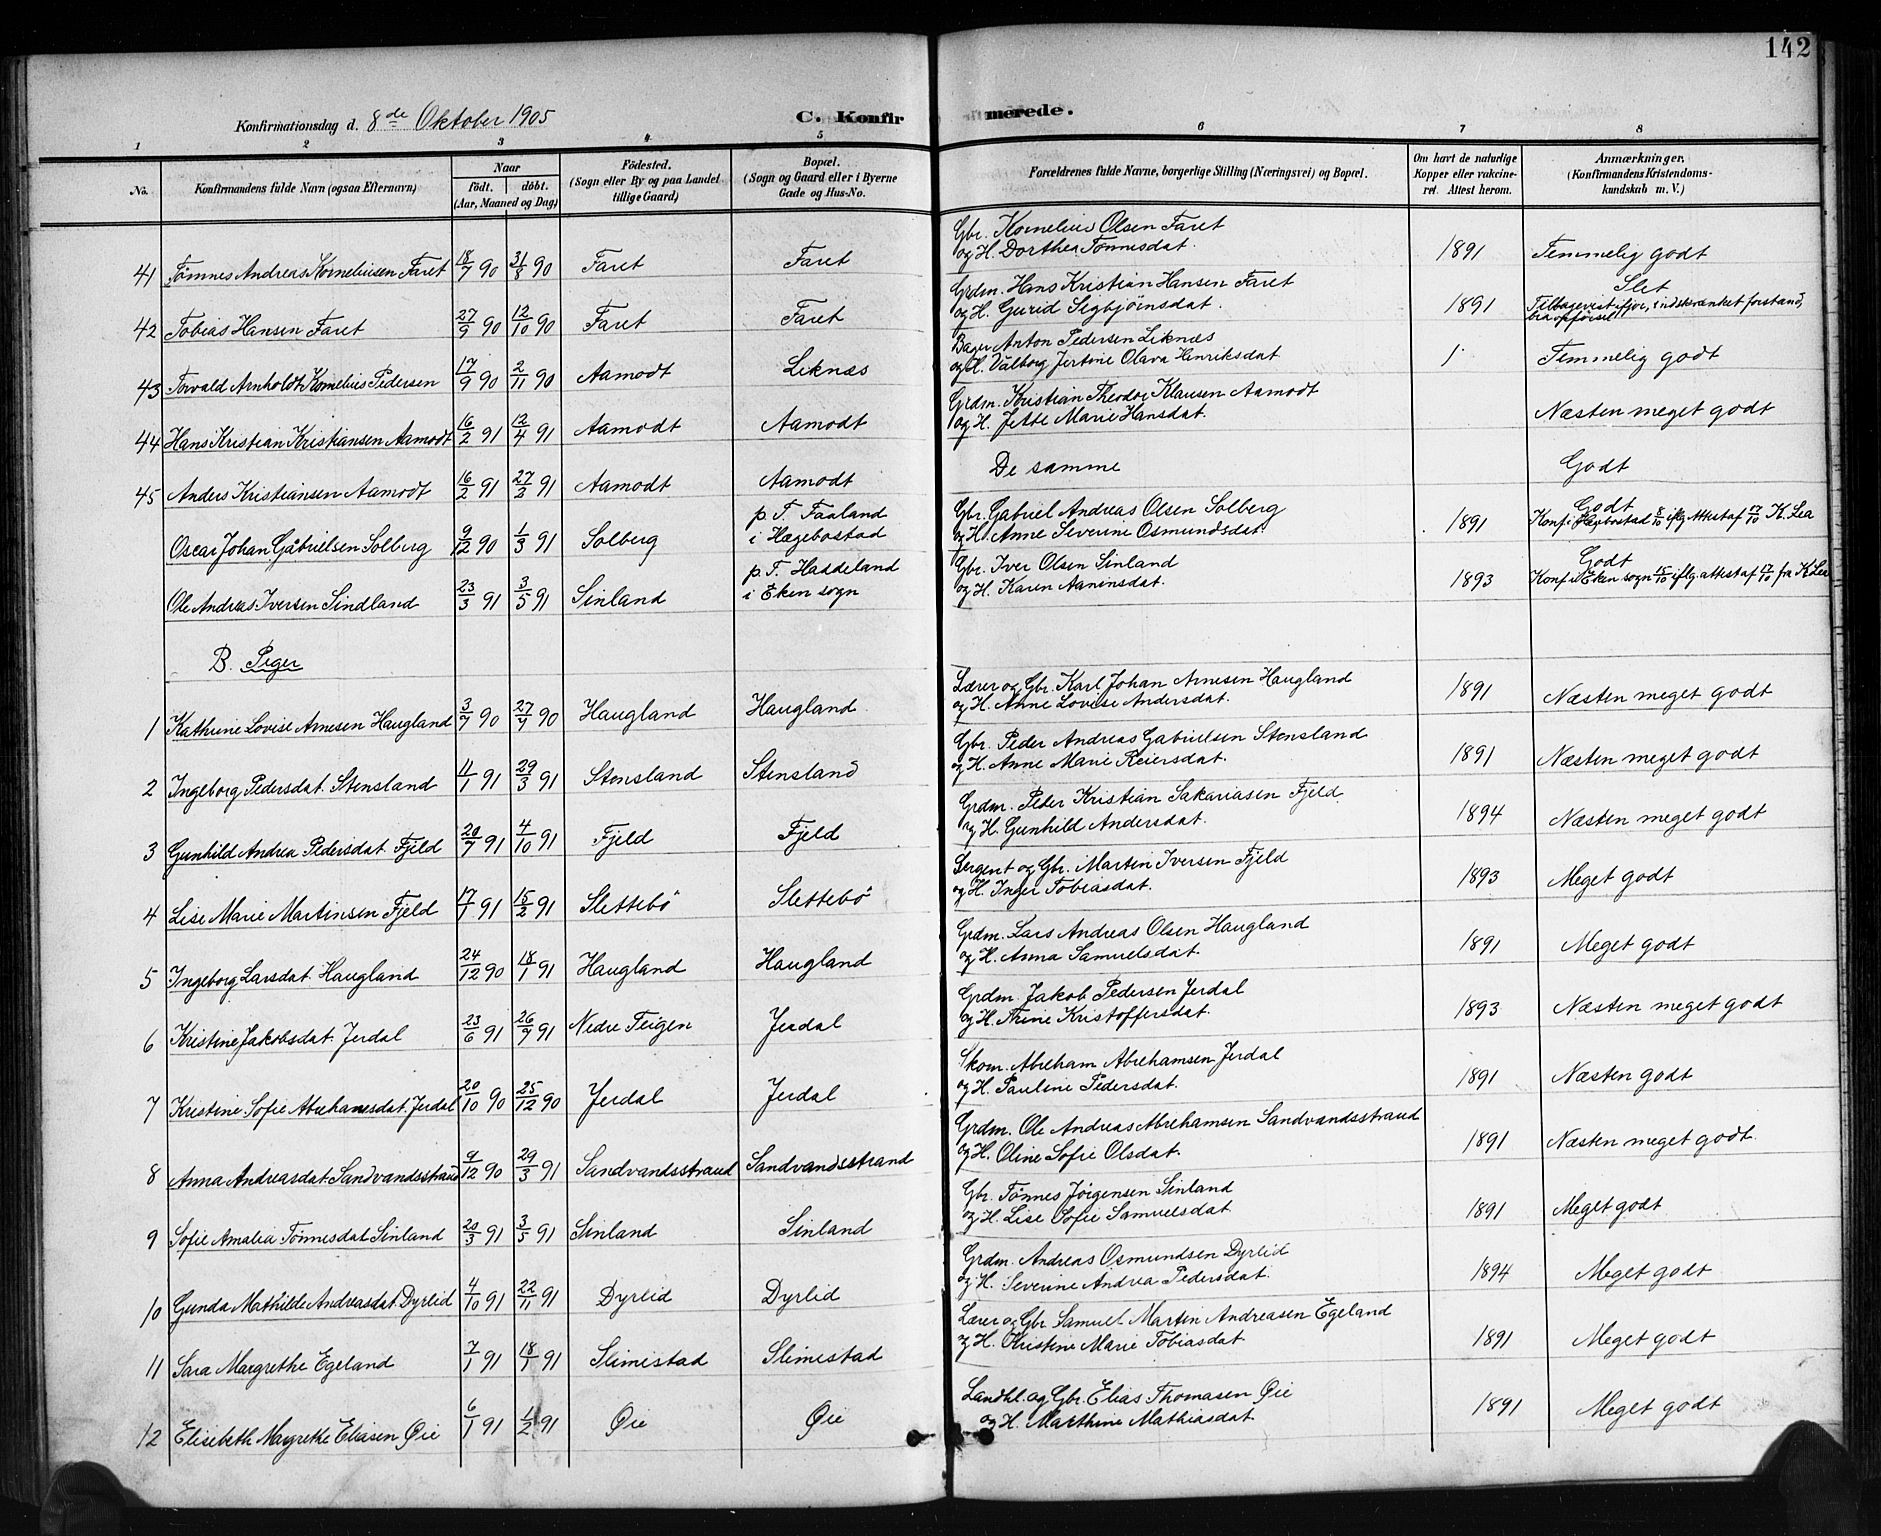 142
Konfirmationsdag d. 8de Oktober 1905 C. Konfirmerede.
1 2 3 4 5 6 7 8
No. Konfirmandens fulde Navn (ogsaa Efternavn) Naar födt. döbt. (Aar, Maaned og Dag) Födested. (Sogn eller By og paa Landet tillige Gaard) Bopæl. (Sogn og Gaard eller i Byerne Gade og Hus-No. Forældrenes fulde Navne, borgerlige Stilling (Næringsvei) og Bopæl. Om havt de naturlige Kopper eller vakcineret. Attest herom. Anmærkninger. (Konfirmandens Kristendomskundskab m. V.)
41 Tønnes Andreas Korneliusen Faret 18/7 90 31/8 90 Faret Faret Gbr. Kornelius Olsen Faret og H. Dorthea Tønnesdat. 1891 Temmelig godt
42 Tobias Hansen Faret 27/9 90 12/10 90 Faret Faret Grdm. Hans Kristian Hansen Faret og H. Gurid Sigbjørnsdat. 1891 Slet Tilbagevist ifjor, indskrænket forstand, bra opførsel
43 Torvald Arnholdt Kornelius Pedersen 17/9 90 2/11 90 Aamodt Liknæs Bager Anton Pedersen Liknæs og H. Valborg Jertine Olava Henriksdat 1. Temmelig godt
44 Hans Kristian Kristiansen Aamodt 16/2 91 12/4 91 Aamodt Aamodt Grdm. Kristian Theodor Klausen Aamodt og H. Jette Marie Hansdat. Næsten meget godt
45 Anders Kristiansen Aamodt 16/2 91 27/2 91 Aamodt Aamodt De samme Godt
Oscar Johan Gabrielsen Solberg 9/12 90 1/3 91 Solberg p. T. Faaland i Hægebostad Gbr. Gabriel Andreas Olsen Solberg og H. Anne Severine Osmundsdat. 1891 Godt Konf i Hægbostad 8/10 iflg. Attest af 17/10 K. Lea
Ole Andreas Iversen Sindland 23/3 91 3/5 91 Sinland p. T. Haddeland i Eken sogn Gbr. Iver Olsen Sinland og H. Karen Aanensdat. 1893 Godt Konf i Eken sogn 15/10 iflg. attest af 17/10 fra K Lea
B. Piger
1 Kathrine Lovise Arnesen Haugland 3/7 90 27/7 90 Haugland Haugland Lærer og Gbr. Karl Johan Arnesen Haugland og H. Anne Lovise Andersdat. 1891 Næsten meget godt
2 Ingeborg Pedersdat. Stensland 11/1 91 29/3 91 Stensland Stensland Gbr. Peder Andreas Gabrielsen Stensland og H. Anne Marie Reiersdat. 1891 Næsten meget godt
3 Gunhild Andrea Pedersdat. Fjeld 20/7 91 4/10 91 Fjeld Fjeld Grdm. Peder Kristian Sakariasen Fjeld og H. Gunhild Andersdat. 1894 Næsten meget godt
4 Lise Marie Martinsen Fjeld 17/1 91 15/2 91 Slettebö Slettebö Sergent og Gbr. Martin Iversen Fjeld og H. Inger Tobiasdat. 1893 Meget godt
5 Ingeborg Larsdat. Haugland 24/12 90 18/1 91 Haugland Haugland Grdm. Lars Andreas Olsen Haugland og H. Anna Samuelsdat. 1891 Meget godt
6 Kristine Jakobsdat. Jerdal 23/6 91 26/7 91 Nedre Feigen Jerdal Grdm. Jakob Pedersen Jerdal og H. Trine Kristoffersdat. 1893 Næsten meget godt
7 Kristine Sofie Abrehamsdat. Jerdal 20/10 90 25/12 90 Jerdal Jerdal Skom. Abreham Abrehamsen Jerdal og H. Pauline Pedersdat. 1891 Næsten godt
8 Anna Andreasdat. Sandvandsstrand 9/12 90 29/3 91 Sandvandsstrand Sandvandsstrand Grdm. Ole Andreas Abrehamsen Sandvandsstrand og H. Oline Sofie Olsdat. 1891 Næsten meget godt.
9 Sofie Amalia Tönnesdat Sinland 20/3 91 3/5 91 Sinland Sinland Gbr. Tönnes Jörgensen Sinland og H. Lise Sofie Samuelsdat. 1891 Meget godt
10 Gunda Mathilde Andreasdat. Dyrlid 4/10 91 22/11 91 Dyrlid Dyrlid Grdm. Andreas Osmundsen Dyrlid og H. Severine Andrea Pedersdat. 1894 Meget godt
11 Sara Margrethe Egeland 7/1 91 18/1 91 Slimestad Slimestad Lærer og Gbr Samuel Martin Andreasen Egeland og H. Kristine Marie Tobiasdat. 1891 Meget godt
12 Elisebeth Margrethe Eliasen Øie 6/1 91 1/2 91 Øie Øie Landhl. og Gbr. Elias Thomasen Øie og H. Marthine Mathiasdat 1891 Meget godt